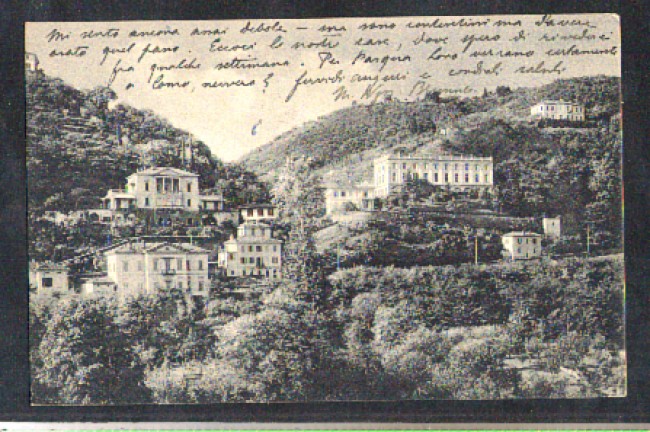 Mi sento ancora assai debole – ma sono contentissima d'avere
quel passo. Eccoci le nostre case, dove spero di rivederci
fra qualche settimana. Per Pasqua loro verranno certamente
a Como, nevvero? fervidi auguri e cordiali saluti